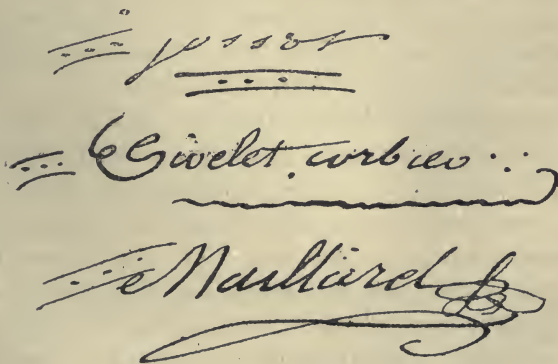 jossot
Givelet. corbieo
e Maulliard